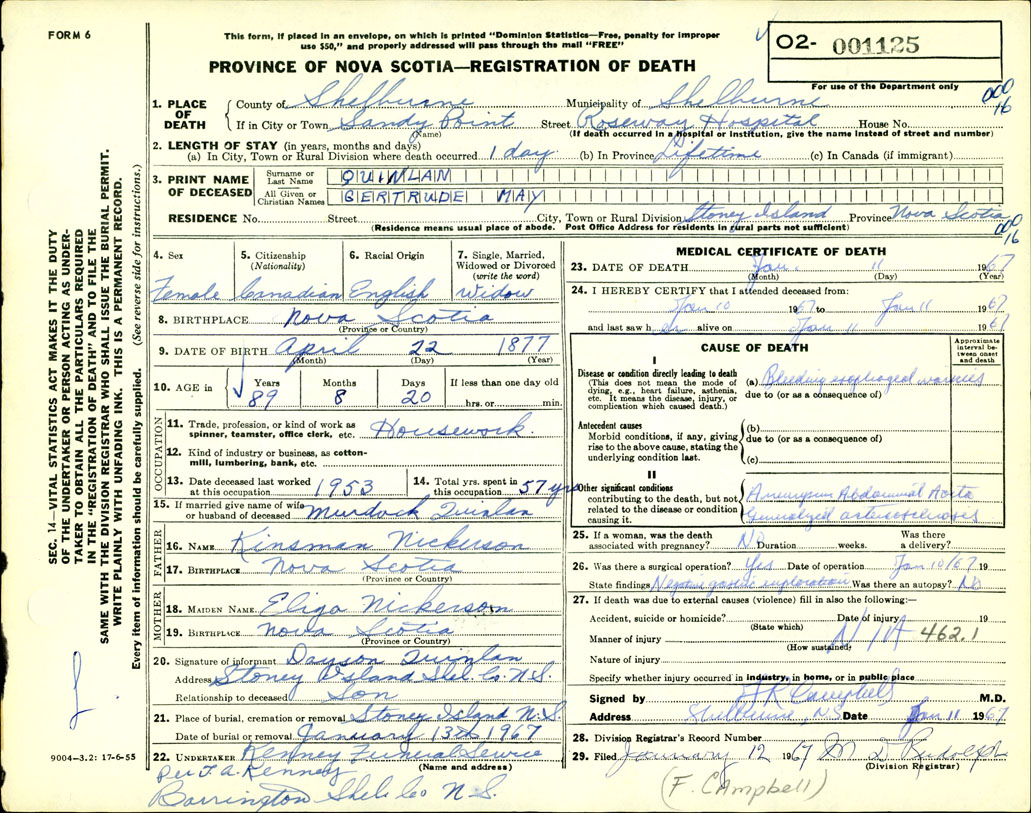 FORM 6
This form, if placed in an envelope, on which is printed "Dominion Statistics—Free, penalty for improper
use $50," and properly addressed will pass through the mail "FREE"
O2- 001125
PROVINCE OF NOVA SCOTIA—REGISTRATION OF DEATH
For use of the Department only
1. PLACE OF DEATH
County of Shelburne Municipality of Shelburne
If in City or Town Sandy Point Street Roseway Hospital House No.
(Name) (If death occurred in a Hospital or institution, give the name instead of street and number)
000
16
2. LENGTH OF STAY (in years, months and days)
(a) In City, Town or Rural Division where death occurred 1 day (b) In Province Lifetime (c) In Canada (if immigrant)
3. PRINT NAME OF DECEASED
Surname or Last Name QUINLAN
All Given or Christian Names GERTRUDE MAY
RESIDENCE No. Street City, Town or Rural Division Stoney Island Province Nova Scotia
(Residence means usual place of abode. Post Office Address for residents in rural parts not sufficient)
000
16
4. Sex Female
5. Citizenship (Nationality) Canadian
6. Racial Origin English
7. Single, Married, Widowed or Divorced (write the word) Widow
8. BIRTHPLACE Nova Scotia
(Province or Country)
9. DATE OF BIRTH April 22 1877
(Month) (Day) (Year)
10. AGE in Years 89 Months 8 Days 20 If less than one day old hrs. or min.
OCCUPATION
11. Trade, profession, or kind of work as spinner, teamster, office clerk, etc. Housework.
12. Kind of industry or business, as cotton-mill, lumbering, bank, etc.
13. Date deceased last worked at this occupation 1953
14. Total yrs. spent in this occupation 57 yrs
15. If married give name of wife or husband of deceased Murdock Quinlan
FATHER
16. NAME Kinsman Nickerson
17. BIRTHPLACE Nova Scotia
(Province or Country)
MOTHER
18. MAIDEN NAME Eliza Nickerson
19. BIRTHPLACE Nova Scotia
(Province or Country)
20. Signature of informant Dawson Quinlan
Address Stoney Island Shel. Co. N.S.
Relationship to deceased Son
21. Place of burial, cremation or removal Stoney Island N.S.
Date of burial or removal January 13th 1967
22. UNDERTAKER Kenney Funeral Service
(Name and address)
Per J.A. Kenney
Barrington Shel. Co N.S.
MEDICAL CERTIFICATE OF DEATH
23. DATE OF DEATH Jan. 11 1967
(Month) (Day) (Year)
24. I HEREBY CERTIFY that I attended deceased from:
Jan 10 1967 to Jan 11 1967
and last saw her alive on Jan 11 1967
CAUSE OF DEATH
Approximate interval between onset and death
I
Disease or condition directly leading to death
(This does not mean the mode of dying, e.g., heart failure, asthenia, etc. It means the disease, injury, or complication which caused death.)
(a) Bleeding esophageal varices
due to (or as a consequence of)
Antecedent causes
Morbid conditions, if any, giving rise to the above cause, stating the underlying condition last.
(b)
due to (or as a consequence of)
(c)
II
Other significant conditions contributing to the death, but not related to the disease or condition causing it.
Aneurysm Abdominal Aorta
Generalized arteriosclerosis
25. If a woman, was the death associated with pregnancy? No Duration weeks. Was there a delivery?
26. Was there a surgical operation? Yes Date of operation Jan 10/67 19
State findings Negative gastric exploration Was there an autopsy? No
27. If death was due to external causes (violence) fill in also the following:—
Accident, suicide or homicide? Date of injury 19
(State which)
Manner of injury N/A 462.1
(How sustained)
Nature of injury
Specify whether injury occurred in industry, in home, or in public place
Signed by Campbell M.D.
Address Shelburne, N.S. Date Jan 11 1967
28. Division Registrar's Record Number
29. Filed January 12 1967 M D Rudolph
(Division Registrar)
(F. Campbell)
SEC. 14—VITAL STATISTICS ACT MAKES IT THE DUTY
OF THE UNDERTAKER OR PERSON ACTING AS UNDER-
TAKER TO OBTAIN ALL THE PARTICULARS REQUIRED
IN THE "REGISTRATION OF DEATH" AND TO FILE THE
SAME WITH THE DIVISION REGISTRAR WHO SHALL ISSUE THE BURIAL PERMIT.
WRITE PLAINLY WITH UNFADING INK. THIS IS A PERMANENT RECORD.
Every item of information should be carefully supplied. (See reverse side for instructions.)
9004—3.2: 17-6-55